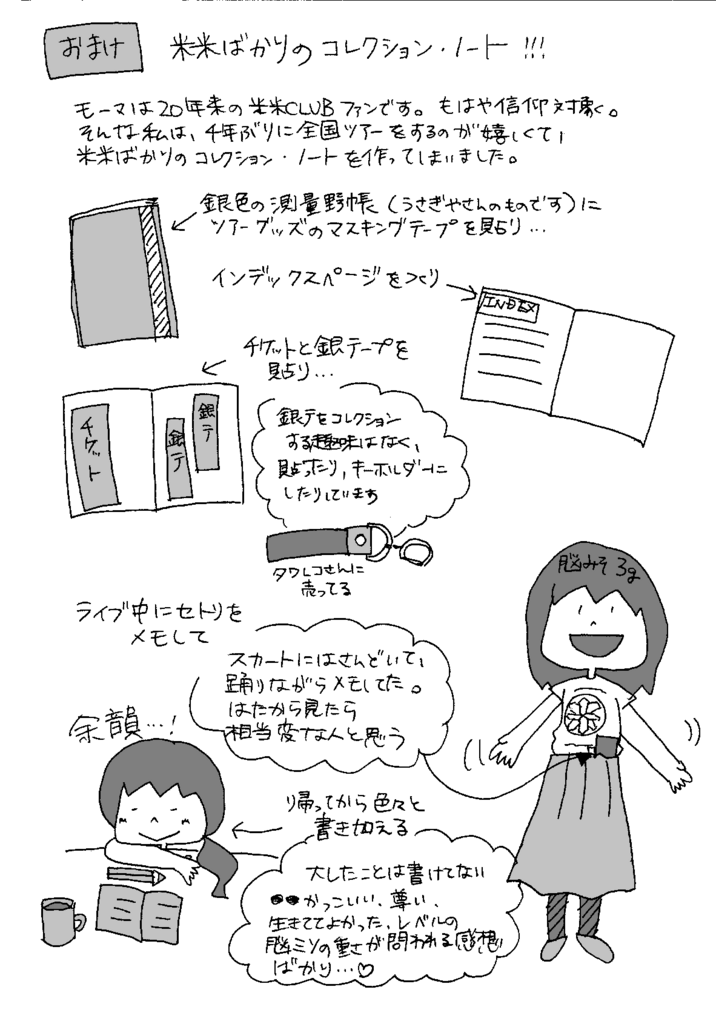 おまけ 米米ばかりのコレクション・ノート!!!
モーマは20年来の米米CLUBファンです。もはや信仰対象。
そんな私は、4年ぶりに全国ツアーをするのが嬉しくて、
米米ばかりのコレクション・ノートを作ってしまいました。
銀色の測量野帳(うさぎやさんのものです)に
ツアーグッズのマスキングテープを貼り…
インデックスページをつくり
INDEX
チケットと銀テープを
貼り…
チケット
銀テ
銀テ
銀テをコレクション
する趣味はなく、
貼ったり、キーホルダーに
したりしています
タワレコさんに
売ってる
脳みそ3g
ライブ中にセトリを
メモして
スカートにはさんどいて、
踊りながらメモしてた。
はたから見たら
相当変な人と思う
余韻…!
り帰ってから色々と
書き加える
大したことは書けてない
●●かっこいい、尊い、
生きててよかった、レベルの
脳ミソの重さが問われる感想
ばかり…♡